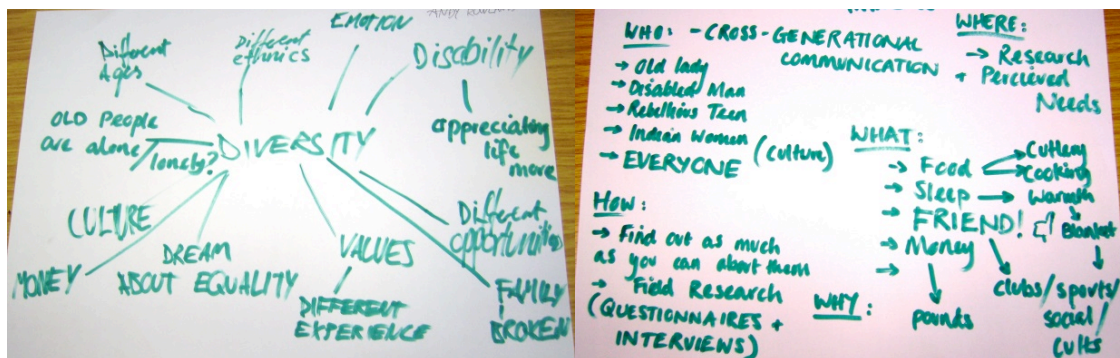 EMOTION
Different
Ages
Different
ethnics
Disability
OLD PEOPLE
are alone/
lonely?
DIVERSITY
appreciating
life
more
CULTURE
MONEY
DREAM
ABOUT EQUALITY
VALUES
DIFFERENT
EXPERIENCE
Different
opportunities
FAMILY
BROKEN
WHO: - CROSS-GENERATIONAL
COMMUNICATION
→ Old lady
→ Disabled Man
→ Rebellious Teen
→ Indian Women (Culture)
→ EVERYONE
WHERE:
→ Research
+ Percieved
Needs
WHAT:
→ Food → Cutlery
→ Cooking
→ Sleep → Warmth
→ FRIEND!
Blanket
→ Money
→
pounds
clubs/sports/
social/
cults
HOW:
→ Find out as much
as you can about them
→ Field Research
(QUESTIONNAIRES +
INTERVIEWS)
WHY: